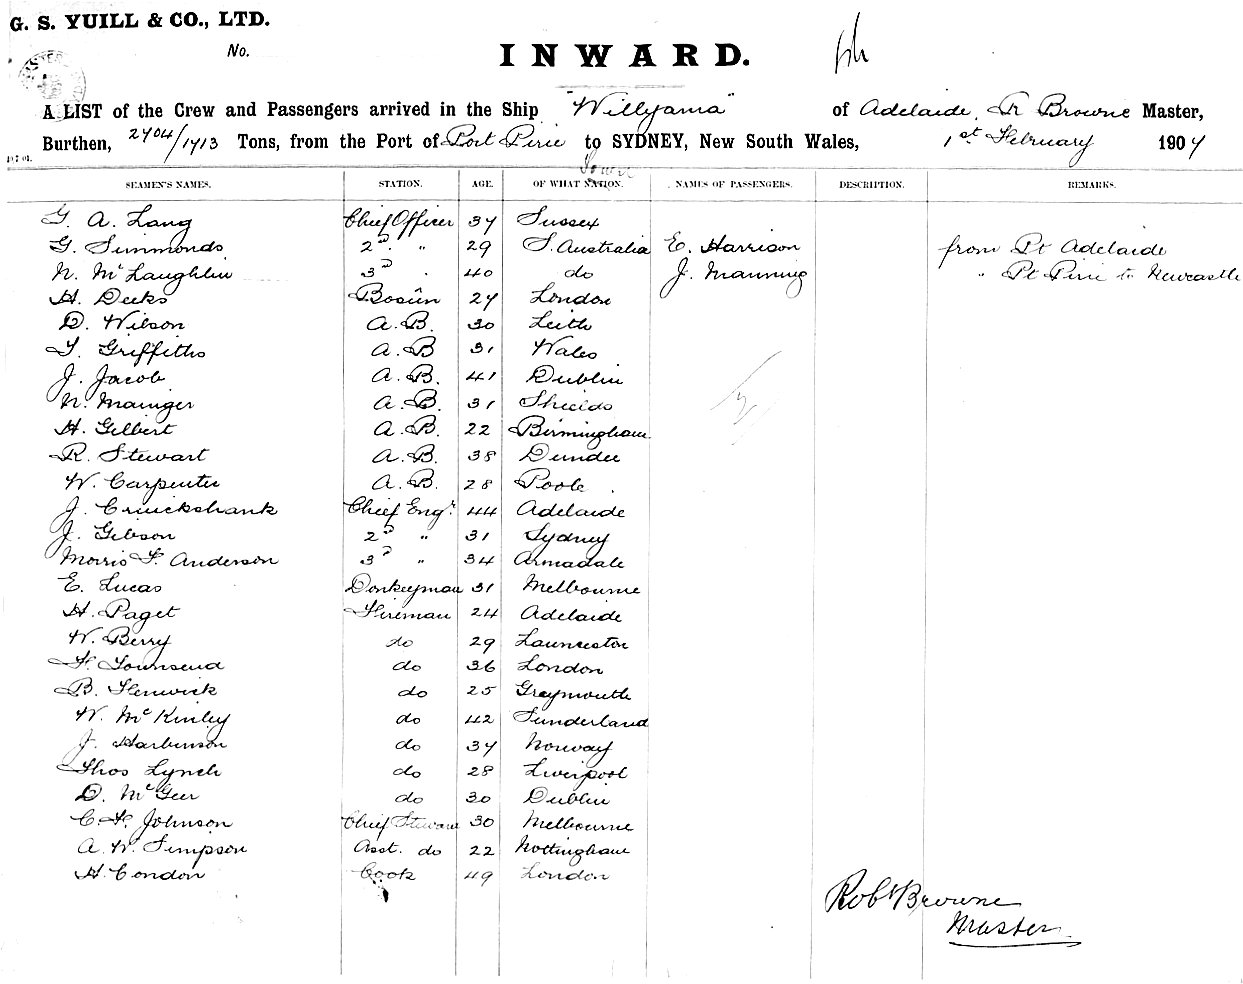 G. S. YUILL & CO., LTD.
No.
INWARD.
A LIST of the Crew and Passengers arrived in the Ship "Willyama" of Adelaide, R Browne Master,
Burthen, 2704/1713 Tons, from the Port of Port Pirie to SYDNEY, New South Wales, 1st February 1904
Town
SEAMEN'S NAMES. STATION. AGE. OF WHAT NATION. NAMES OF PASSENGERS. DESCRIPTION. REMARKS.
G. A. Lang Chief Officer 37 Sussex
G. Simmonds 2D " 29 S. Australia E. Harrison from Pt Adelaide
N. McLaughlin 3D " 40 do J. Manning " Pt Pirie to Newcastle
H. Deeks Bosun 27 London
D. Wilson A.B. 30 Leith
T. Griffiths A.B 31 Wales
J. Jacob A.B. 41 Dublin
N. Mainger A.B. 31 Shields
H. Gilbert A.B. 22 Birmingham
R. Stewart A.B. 38 Dundee
W. Carpenter A.B. 28 Poole
J. Cruickshank Chief Engr. 44 Adelaide
J. Gibson 2D " 31 Sydney
Morris F. Anderson 3D " 34 Armadale
E. Lucas Donkeyman 31 Melbourne
H. Paget Fireman 24 Adelaide
W. Berry do 29 Launceston
F. Townsend do 36 London
B. Fenwick do 25 Greymouth
W. McKinley do 42 Sunderland
J. Harbinson do 37 Norway
Thos Lynch do 28 Liverpool
D. McGeer do 30 Dublin
C. F. Johnson Chief Steward 30 Melbourne
A. W. Simpson Asst. do 22 Nottingham
H. Condon Cook 49 London
Robt Browne
Master